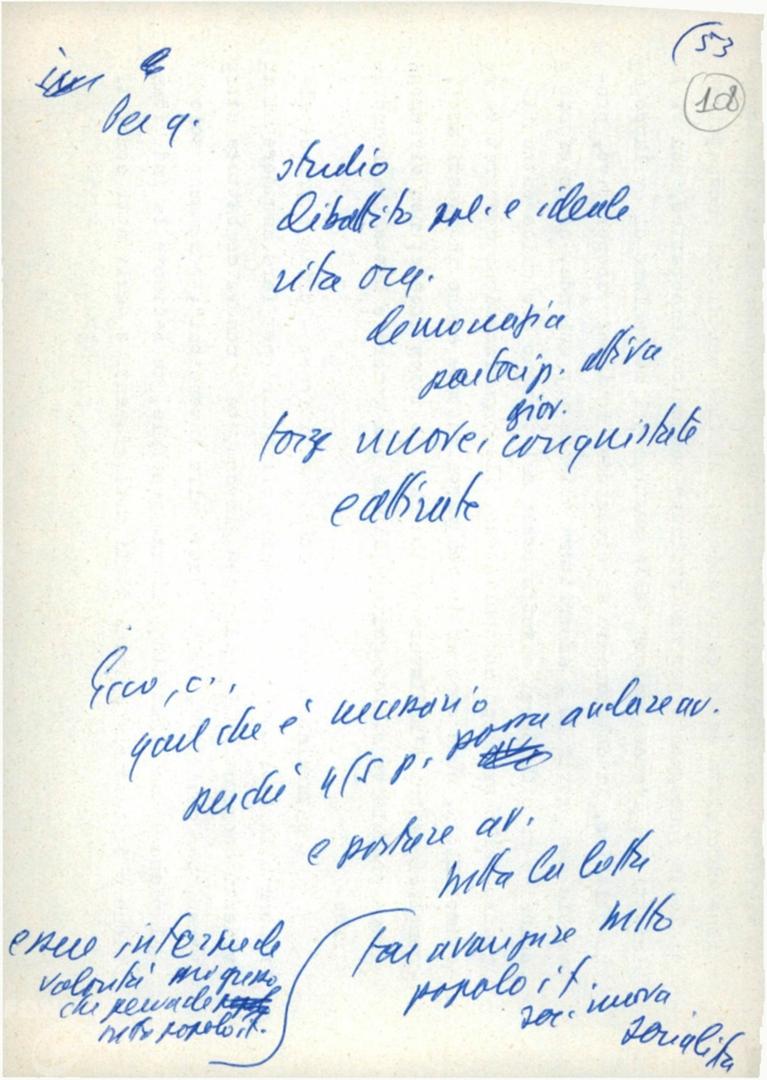 (53
108
e
Per q.
studio
dibattito pol. e ideale
vita org.
democrazia
partecip. attiva
giov.
forze nuove, conquistate
e attivate
Ecco, c.,
quel che è necessario
perché n/s p. possa andare av.
e portare av.
tutta la lotta
far avanzare tutto
popolo it.
soc. nuova
socialista
essere interp. de
volontà progresso
che pervade
tutto popolo it.